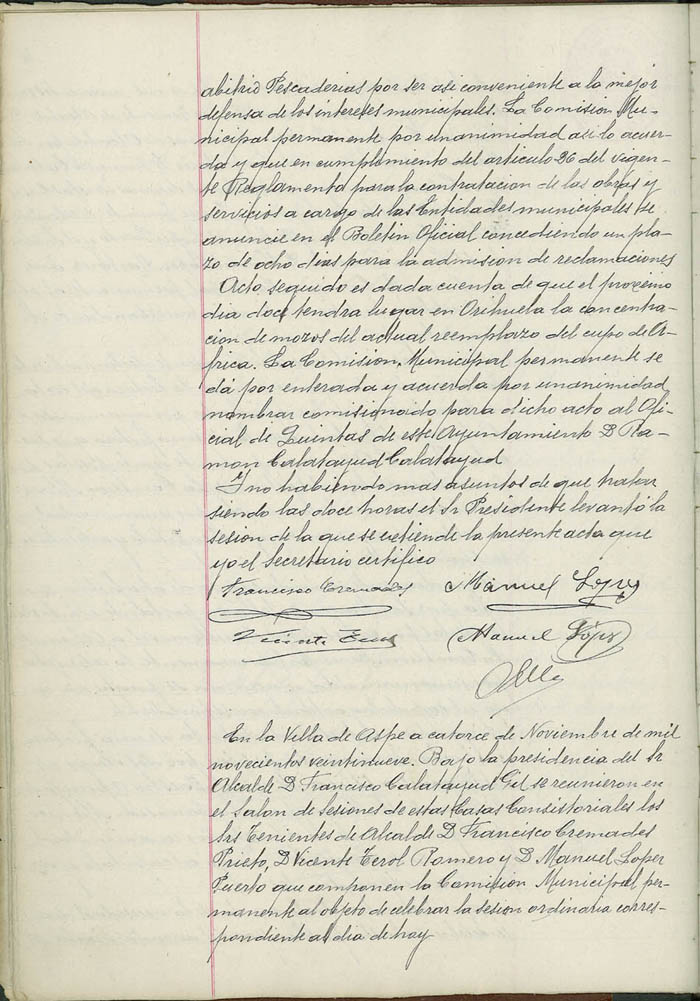 abitrio Pescaderias por ser asi conveniente a la mejor
defensa de los intereses municipales. La Comision Mu-
nicipal permanente por unanimidad asi lo acuer-
da y que en cumplimiento del articulo 26 del vigen-
te Reglamento para la contratacion de las obras y
servicios a cargo de las Entidades municipales se
anuncie en el Boletin Oficial concediendo un pla-
zo de ocho dias para la admision de reclamaciones
Acto seguido es dada cuenta de que el proximo
dia doce tendra lugar en Orihuela la concentra-
cion de mozos del actual reemplazo del cupo de A-
frica. La Comision Municipal permanente se
dá por enterada y acuerda por unanimidad
nombrar comisionado para dicho acto al Ofi-
cial de Quintas de este Ayuntamiento D Ra-
mon Calatayud Calatayud
Y no habiendo mas asuntos de que tratar
siendo las doce horas el Sr Presidente levantó la
sesion de la que se extiende la presente acta que
yo el Secretario certifico
Francisco Cremades Manuel Lopez
Vicente Terol Manuel López
En la Villa de Aspe a catorce de Noviembre de mil
novecientos veintinueve. Bajo la presidencia del Sr
Alcalde D Francisco Calatayud Gil se reunieron en
el Salon de Sesiones de estas Casas Consistoriales los
Srs Tenientes de Alcalde D Francisco Cremades
Prieto, D Vicente Terol Romero y D Manuel Lopez
Puerto que componen la Comision Municipal per-
manente al objeto de celebrar la sesion ordinaria corres-
pondiente al dia de hoy